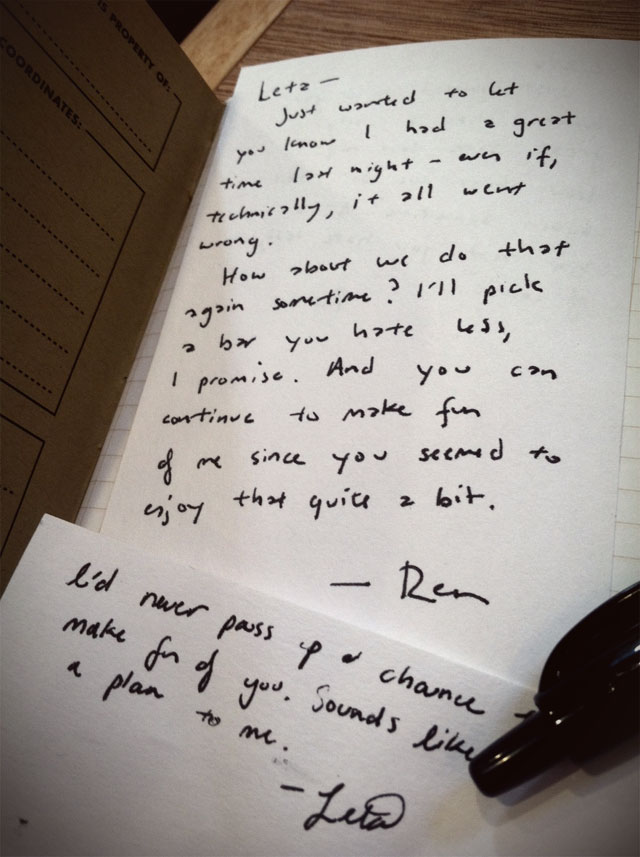 IS PROPERTY OF:
COORDINATES:
Leta —
Just wanted to let
you know I had a great
time last night – even if,
technically, it all went
wrong.
How about we do that
again sometime? I'll pick
a bar you hate less,
I promise. And you can
continue to make fun
of me since you seemed to
enjoy that quite a bit.
— Ren
I'd never pass up a chance to
make fun of you. Sounds like
a plan to me.
– Leta